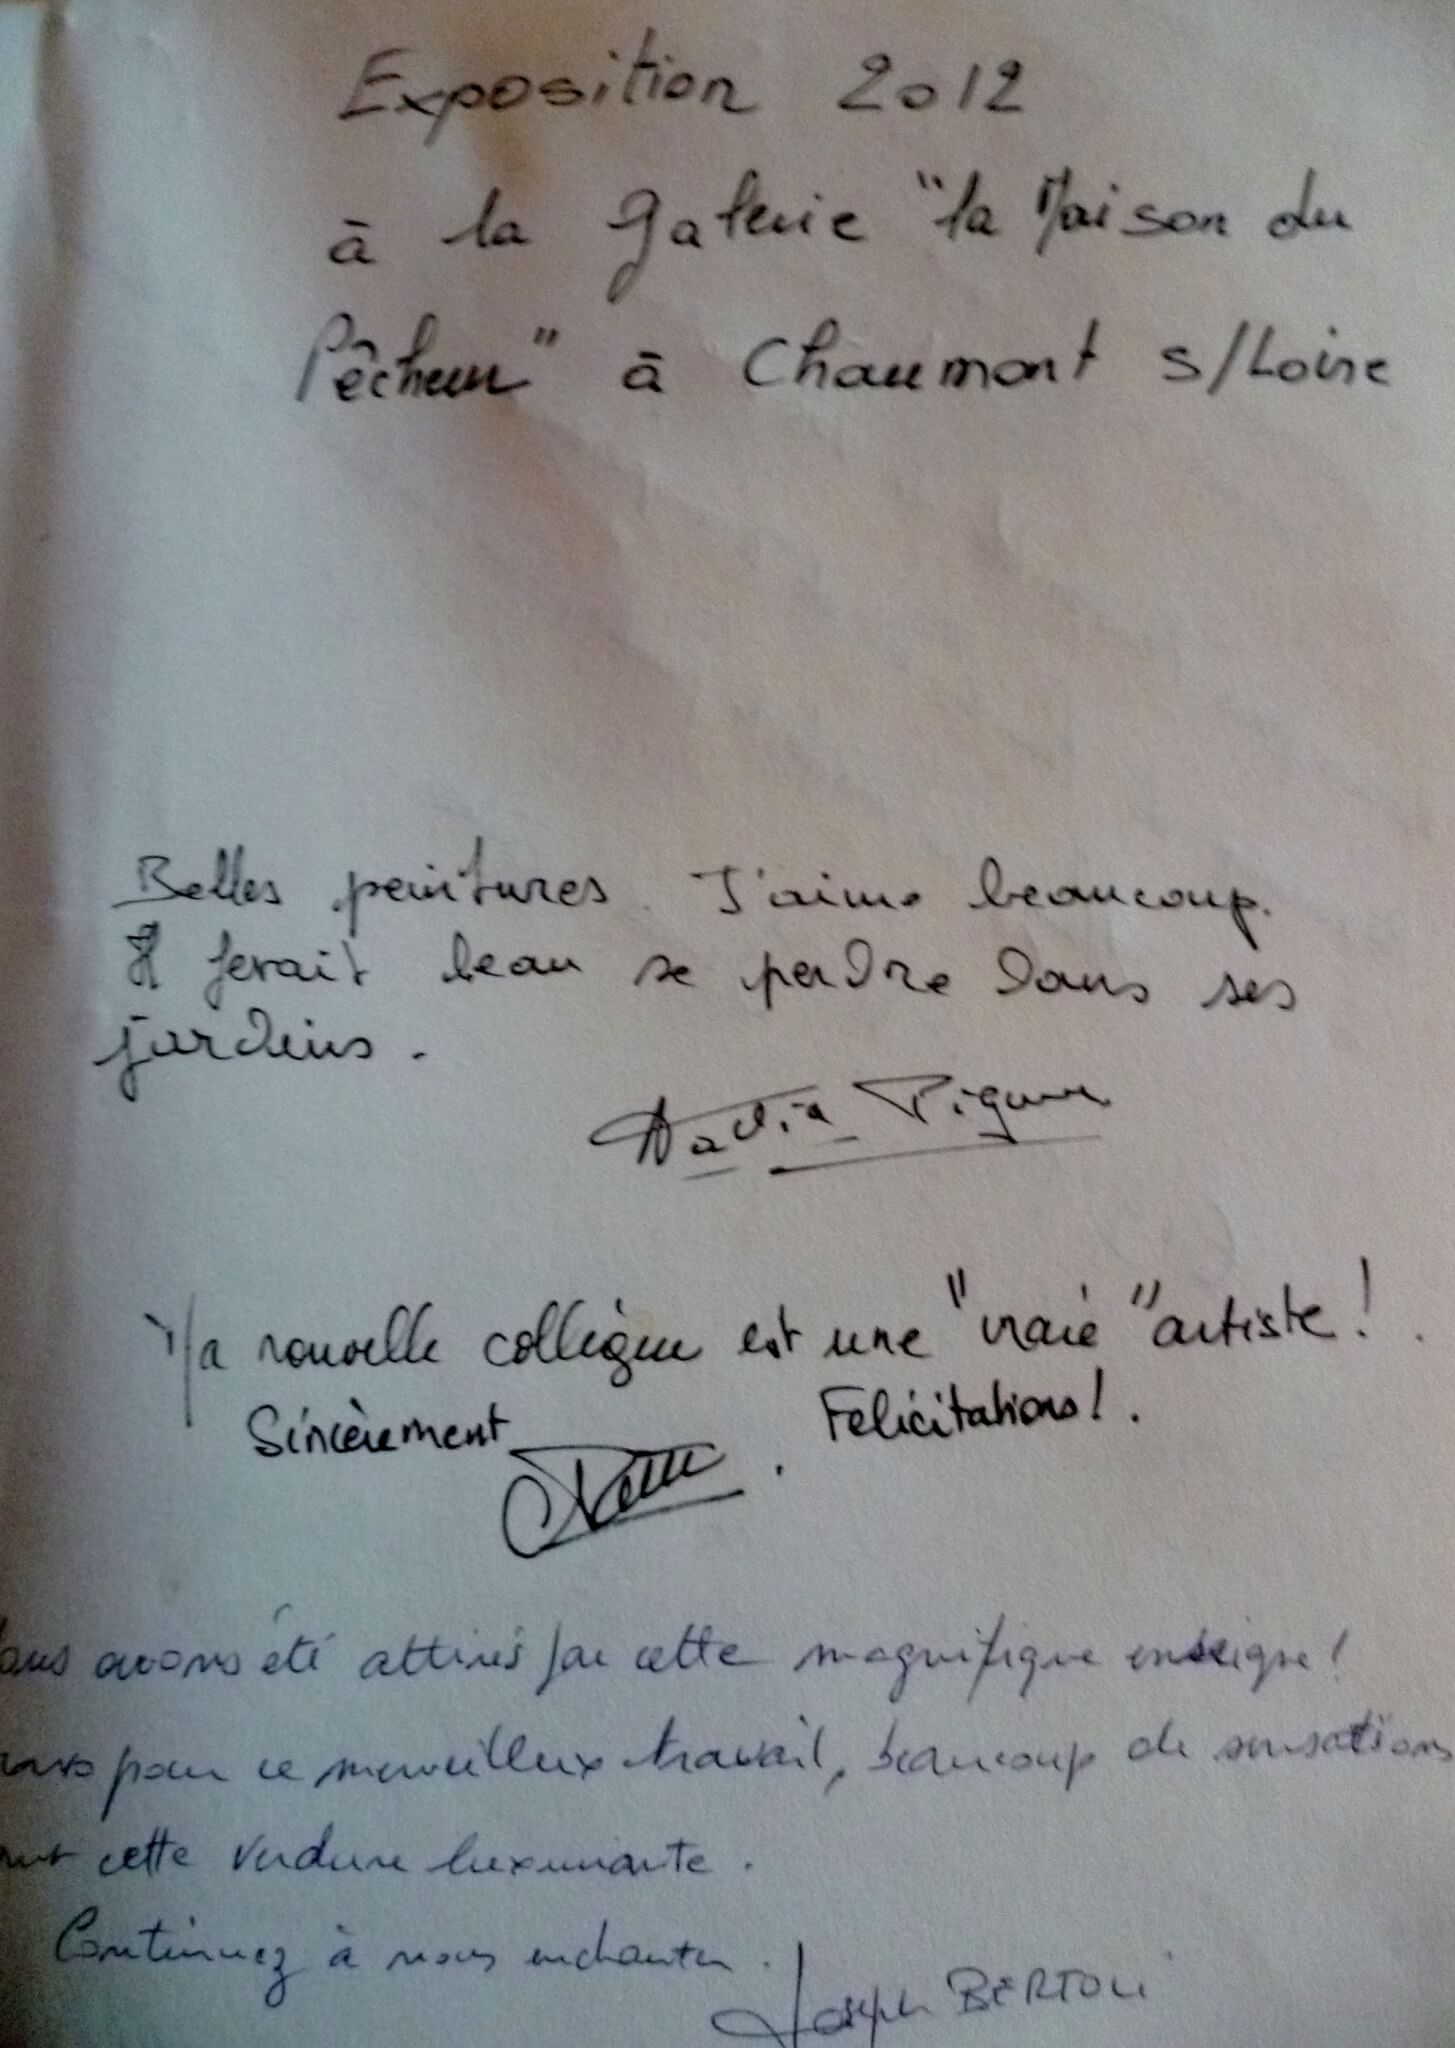 Exposition 2012
à la galerie "la Maison du
Pêcheur" à Chaumont s/Loire
Belles peintures. J'aime beaucoup.
Il ferait beau se perdre dans ses
jardins.
Nadia
Ma nouvelle collègue est une "vraie" artiste!
Sincèrement Félicitations!
avons été attirés par cette magnifique enseigne!
pour ce merveilleux travail, beaucoup de sensations
cette verdure luxuriante.
Continuez à nous enchanter.
Joseph BERTOLI